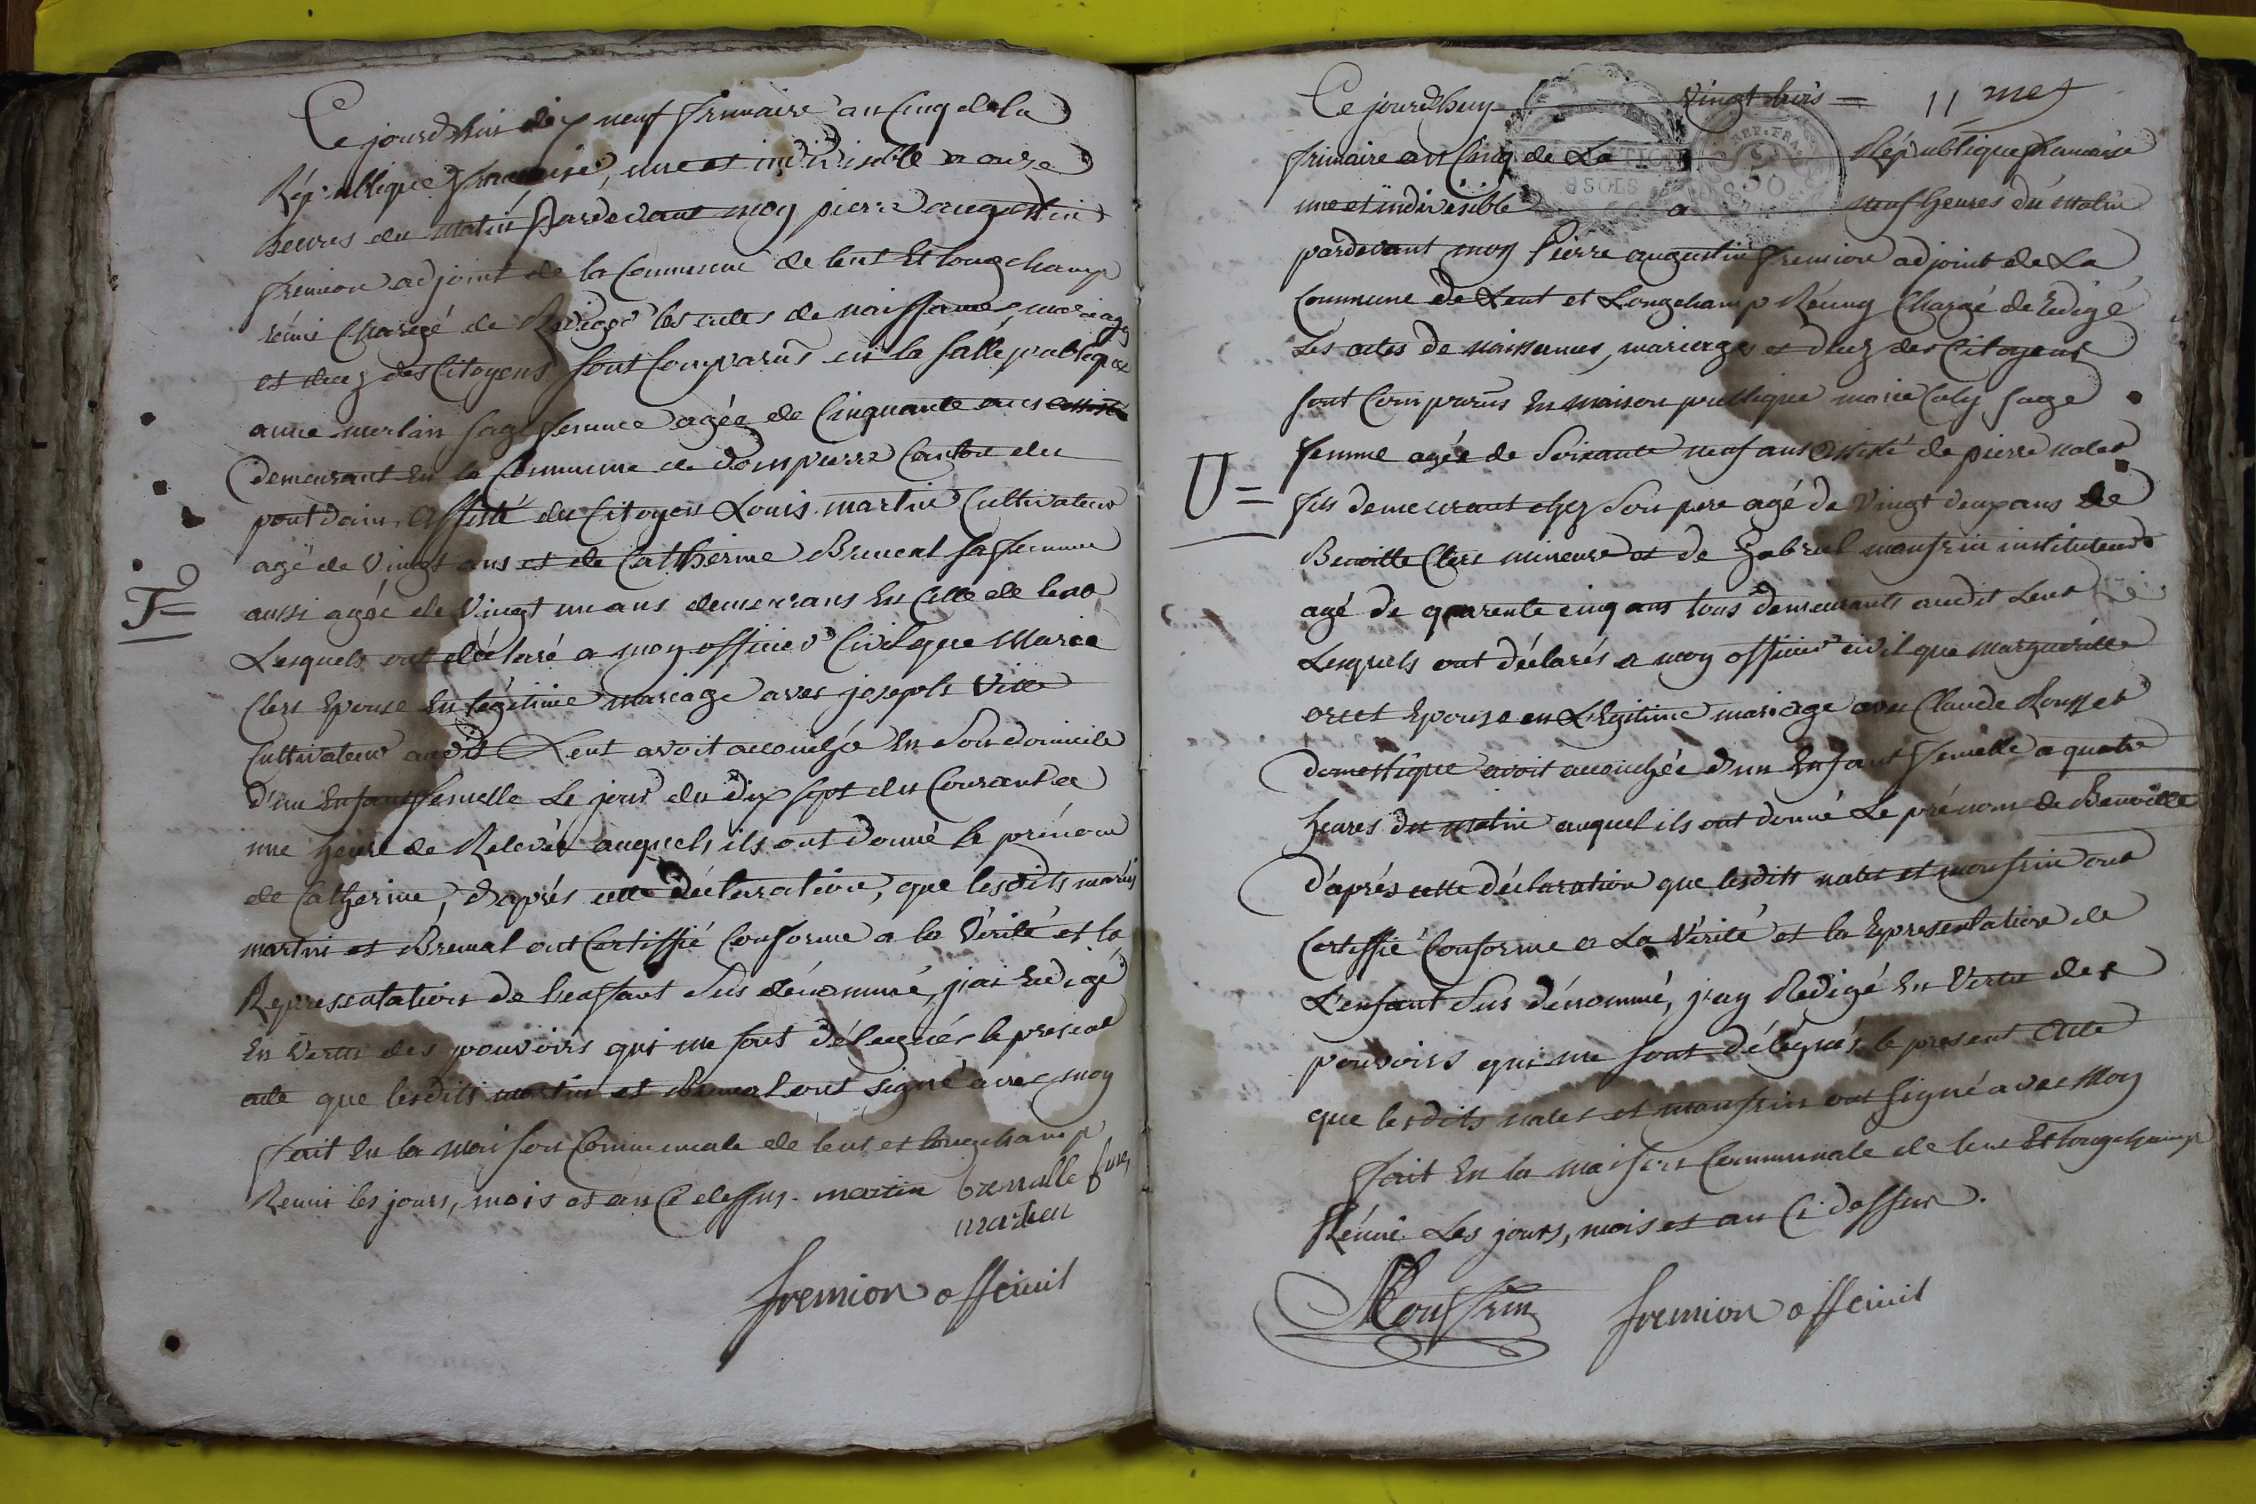 Ce jourdhui dix neuf frimaire an Cinq de la
République française, une et indivisible a onze
heures du matin Pardevant moy pierre augustin
fremion adjoint de la Commune de lent Et longchamp
réuni Chargé de Rédiger les actes de naissances, mariages
et decez des Citoyens sont Comparus en la salle publique
anne merlin sage femme agée de Cinquante ans
demeurant En la Commune de dompierre Canton du
pontdain, Assisté du Citoyen Louis martin Cultivateur
agé de Vingt ans et de Catherine Brunal sa femme
aussi agée de Vingt un ans demeurans En Celle de lent
Lesquels ont déclaré a moy officier Civil que Marie
Clerc Epouse En légitime mariage avec joseph Ville
Cultivateur audit Lent avoit accouchée En Son domicile
d'un Enfant femelle Le jour du dix sept du Courant a
une heure de Relevée auquels ils ont donné le prénom
de Catherine, d'aprés cette déclaration, que lesdits mariés
martin et Brunal ont Certiffié Conforme a la Vérité et la
Representation de Lenfant Sus dénommé, j'ai Redigé
En Vertu des pouvoirs qui me sont délegués le present
acte que lesdits martin et Brunal ont signé avec moy
fait En la maison Communale de lent et longchamp
Reuni les jours, mois et an Ci dessus. martin
martin
fremion off civil
T=
Ce jourdhuy vingt trois = 11 mes
frimaire an Cinq de La République francaise
une et indivisible a neuf heures du matin
pardevant moy Pierre augustin fremion adjoint de La
Commune de Lent et Longchamp Réuny Chargé de redigé
Les actes de naissances, mariages et decez des Citoyens
sont Comparus En maison publique marie Coly sage
femme agée de Soixante neuf ans assisté de pierre nalet
fils demeurant chez Son pere agé de Vingt deux ans de
Benoitte Clerc mineure et de Gabriel monfrin instituteur
agé de quarente cinq ans tous demeurants audit Lent
Lesquels ont déclarés a moy officier civil que marguerite
Epouse en LEgitime mariage avec Claude Rousset
domestique avoit accouchée d'un Enfant femelle a quatre
heures du matin auquel ils ont donné Le prénom de Benoitte
d'aprés cette déclaration que lesdits nalet et monfrin ont
Certiffié Conforme a La Vérité et la Representation de
L'enfant Sus dénommé, j'ay Redigé En Vertu des
pouvoirs qui me sont délégués le present acte
que lesdits nalet et monfrin ont signé avec Moy
fait En la maison Communale de lent Et longchamp
Réuni Les jours, mois et an Ci dessus.
Monfrin fremion off civil
U=
8 SOLS
REP. FRA